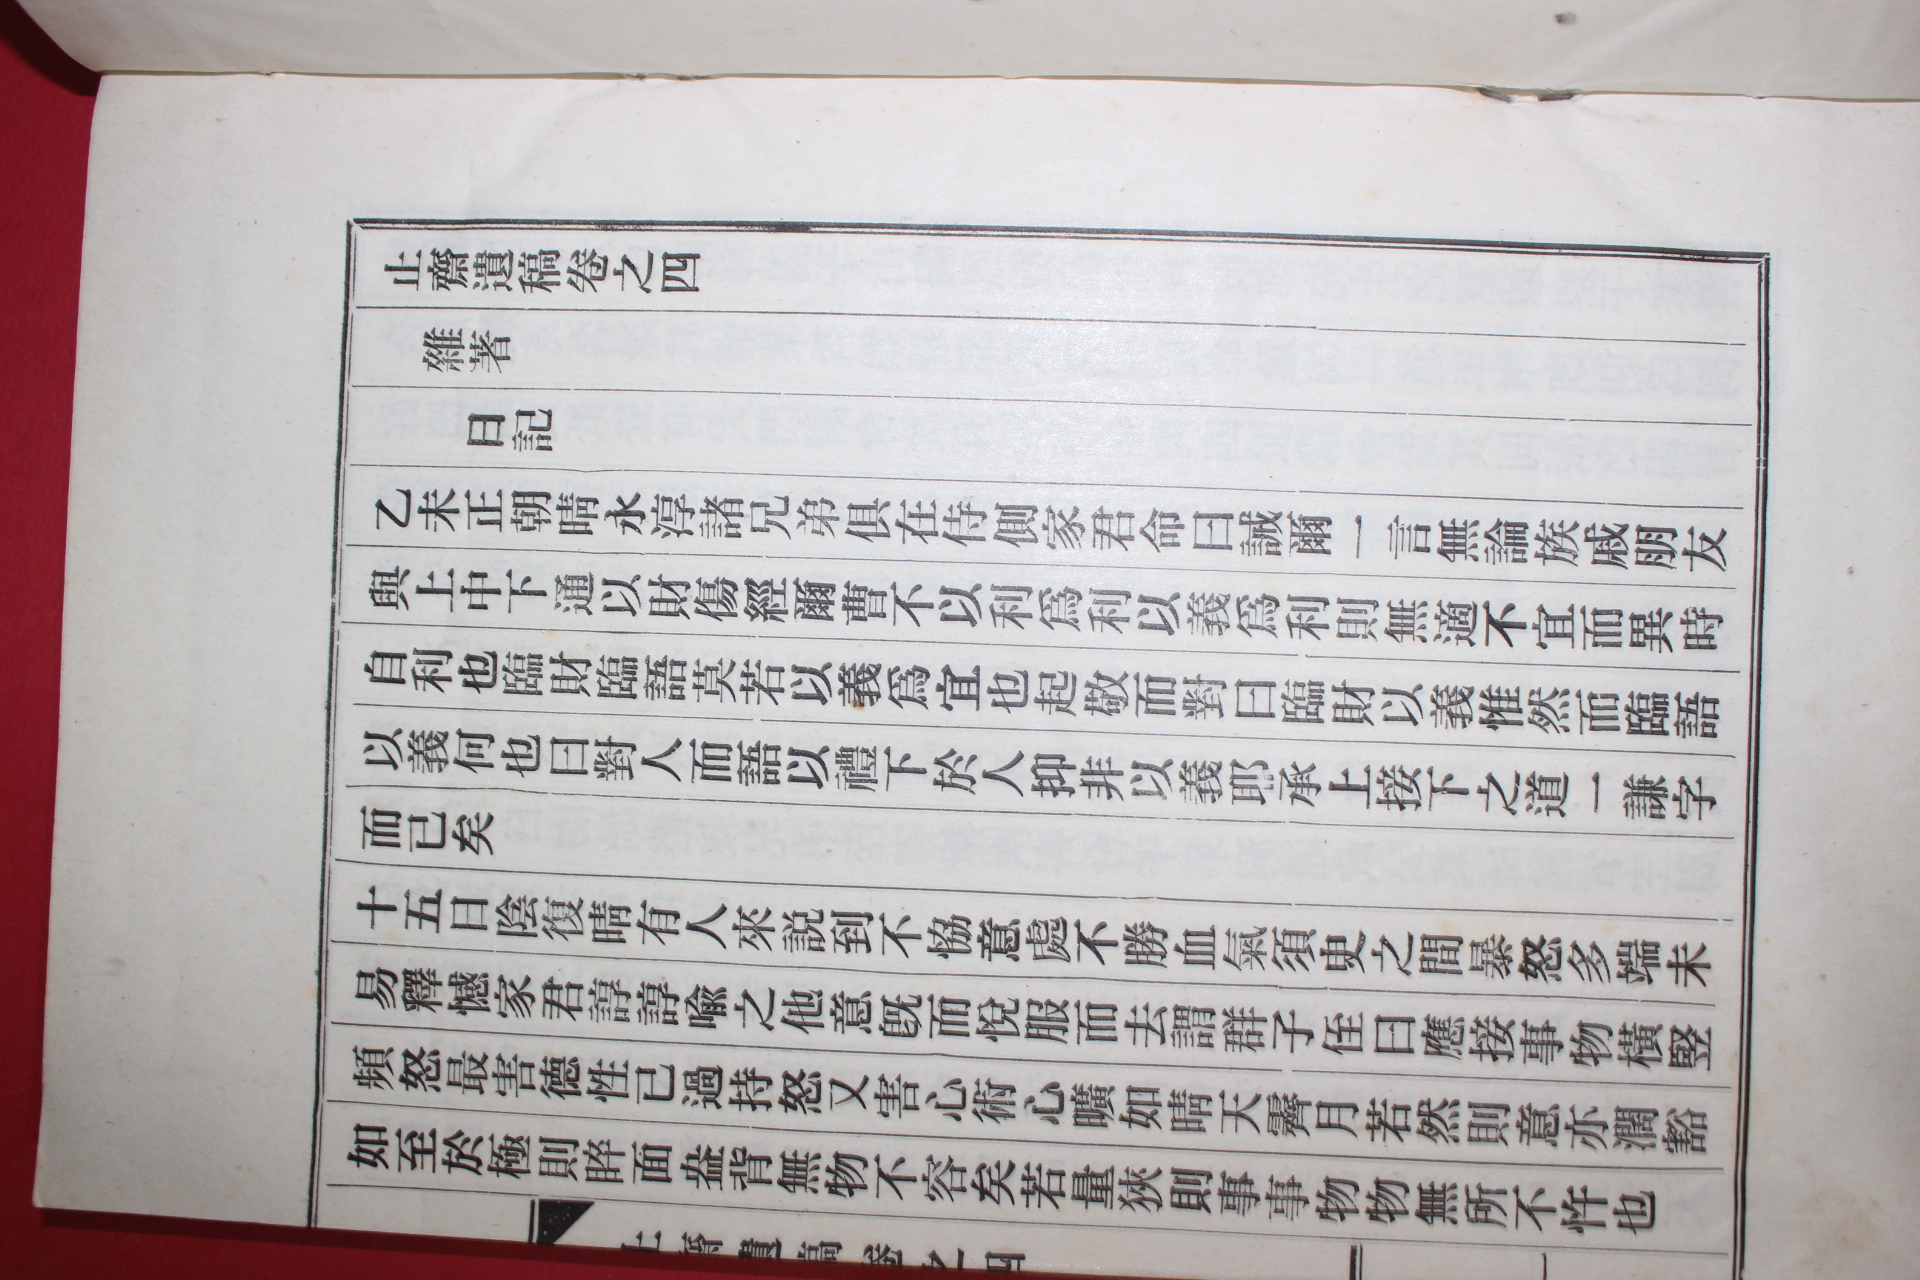 止齋遺稿卷之四
雜著
日記
乙未正朝晴永淳諸兄弟俱在侍側家君命曰誡爾一言無論族戚朋友
與上中下通以財傷經爾曹不以利爲利以義爲利則無適不宜而異時
自利也臨財臨語莫若以義爲宜也起敬而對曰臨財以義惟然而臨語
以義何也曰對人而語以禮下於人抑非以義耶承上接下之道一謙字
而已矣
十五日陰復晴有人來説到不恊意處不勝血氣須史之間暴怒多端未
易釋憾家君諄諄喩之他意旣而悅服而去謂群子侄曰應接事物橫竪
頻怒最害德性已過持怒又害心術心曠如晴天霽月若然則意亦濶豁
如至於極則睟面盎背無物不容矣若量狹則事事物物無所不忤也
止齋遺稿卷之四
一